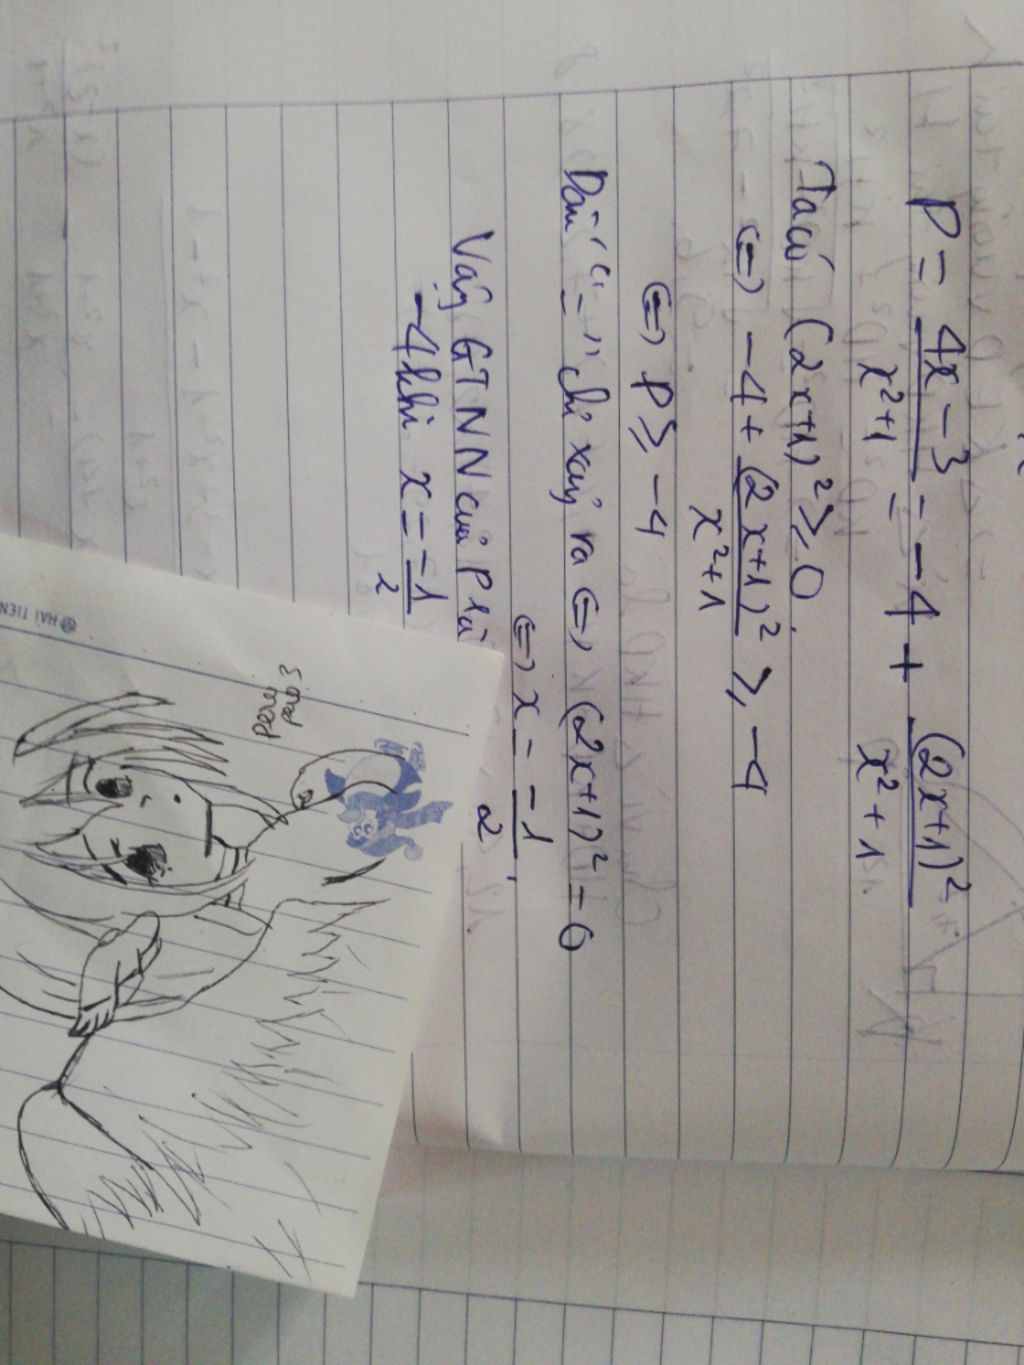 P = \frac{4x-3}{x²+1} = -4 + \frac{(2x+1)²}{x²+1}
Ta có (2x+1)² ≥ 0
(=) -4 + \frac{(2x+1)²}{x²+1} ≥ -4
(=) P ≥ -4
Dấu "=" chỉ xảy ra (=) (2x+1)² = 0
(=) x = \frac{-1}{2}
Vậy GTNN của P là
-4 khi x = \frac{-1}{2}
HẢI TIẾN